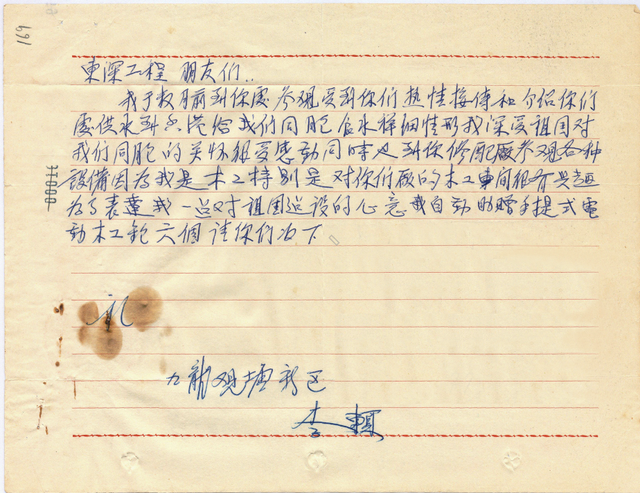 169
東深工程 朋友们..
我于数月前到你處参观受到你们热情接待和介绍你们
處供水到香港给我们同胞食水详细情形我深受祖国对
我们同胞的关怀很受感动同時又到你修配廠参观各种
設備因为我是木工特别是对你们廠的木工車间很有兴趣
为了表達我一点对祖国建设的心意我自动助赠手提式電
動木工鉋六個请你们收下
礼
九龍观塘新区
李